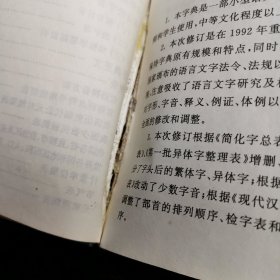 1. 本字典是一部小型语
师和学生使用,中等文化程度以
2. 本次修订是在 1992 年重
保持字典原有规模和特点,同时
国家颁布的语言文字法令、法规以
准,注意吸收了语言文字研究及相
对字形、字音、释义、例证、体例以
全面的修改和调整。
3. 本次修订根据《简化字总表
表》、《第一批异体字整理表》增删、
分了字头后的繁体字、异体字;根据
表》改动了少数字音;根据《现代汉
调整了部首的排列顺序、检字表和
序。